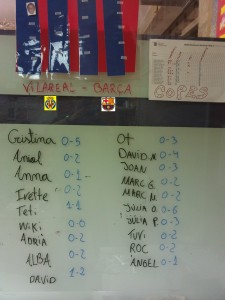 VILAREAL - BARÇA
COPES
Cristina 0-5
Anial 0-2
Anna 0-1
Ivette 0-2
Teti 1-1
Wiki 0-0
ADRIÀ 0-2
ALBA 0-2
DAVID 1-2
OT 0-3
DAVID N 0-4
JOAN 0-3
MARC G. 0-2
MARC M. 0-2
JÚLIA O. 0-6
JÚLIA P. 0-3
TUVI 0-2
ROC 0-2
ÀNGEL 0-1